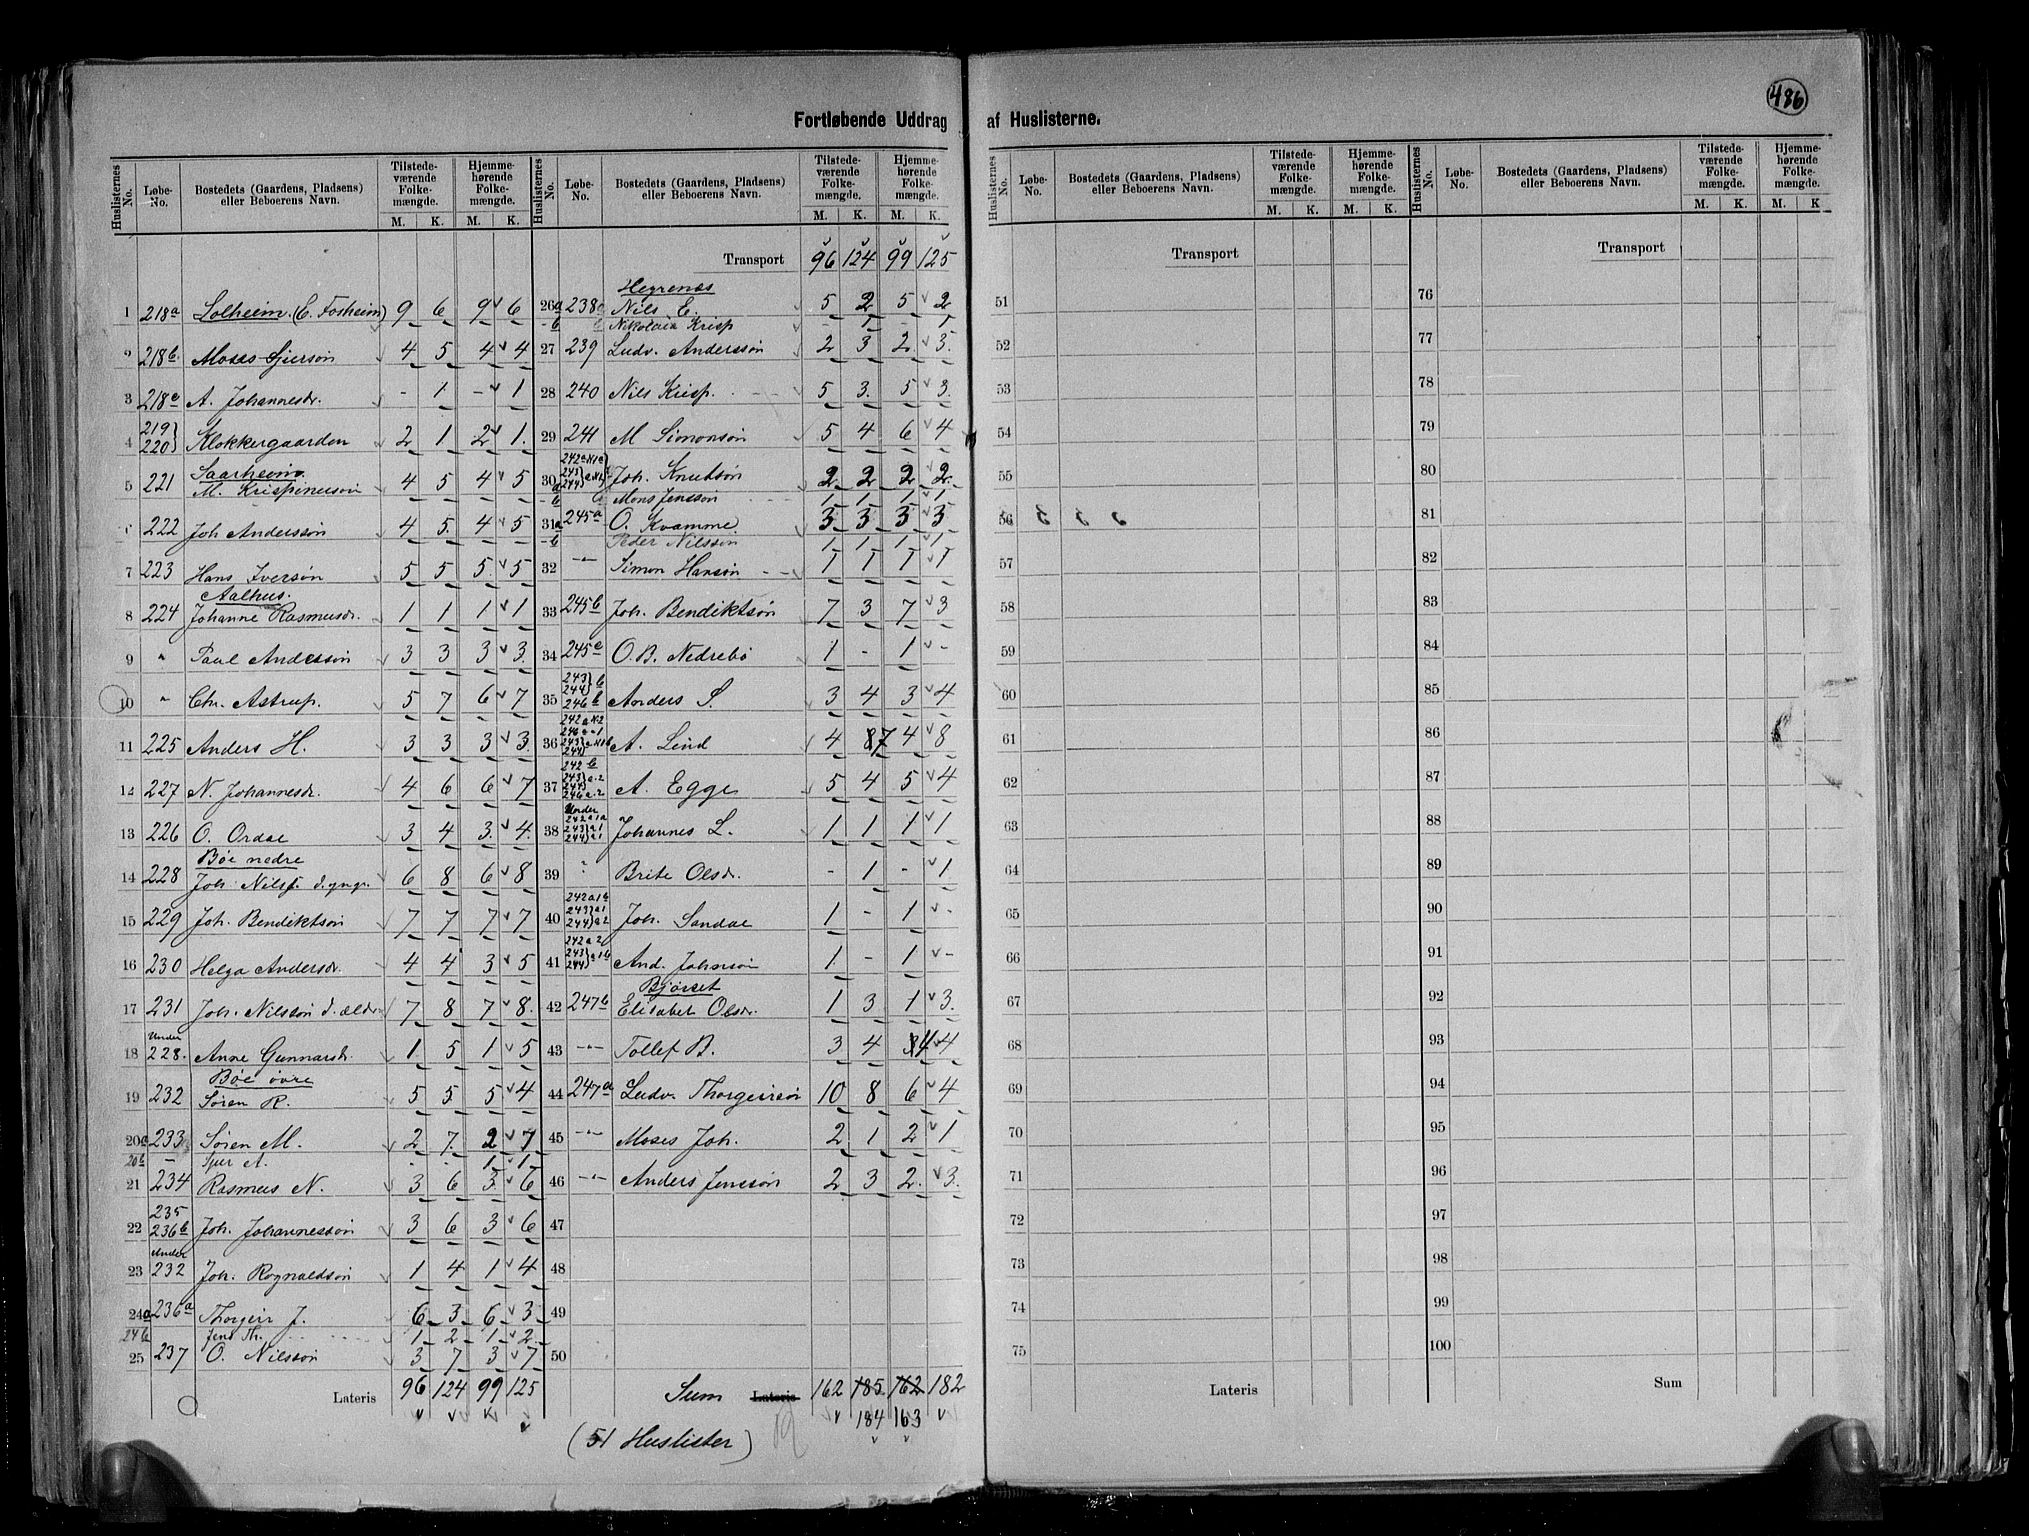 486
Fortløbende Uddrag af Huslisterne.
Huslisternes No. Løbe-No. Bostedets (Gaardens, Pladsens) eller Beboerens Navn. Tilstedeværende Folkemængde. M. K. Hjemmehørende Folkemængde. M. K.
1 218a Solheim. (C. Fosheim) 9 6 9 6
2 218b. Moses 4 5 4 4
3 218c A. Johannesdr. - 1 - 1
4 219 220 } Klokkergaarden 2 1 2 1.
Saarheim.
5 221 M. Krispinusson 4 5 4 5
222 Joh Anderssøn 4 5 4 5
7 223 Hans Iversøn 5 5 5. 5
Aalhus.
8 224 Johanne Rasmusdr. 1 1 1 1
9 " Paul Anderssøn 3 3 3 3.
10 " Chr. Astrup. 5 7 6 7
11 225 Anders H. 3 3 3 3.
12 227 N. Johannesdr. 4 6 6 7
13 226 O. Ordae 3 4 3. 4.
Bøe nedre
14 228 Joh. Nilss. d. yngr. 6 8 6 8
15 229 Joh. Bendiktsøn 7 7 7 7
16 230 Helga Andersdr. 4 4 3 5
17 231 Joh. Nilssøn d. ældr. 7 8 7 8.
18 Under 228. Anne Gunnarsdr. 1 5 1 5
Bøe øvre
19 232 Søren R. 5 5 5 4
20a 233 Søren M. 2 7. 2 7
20b - Sjur A. - - 1 1
21 234 Rasmus N. 3 6 3. 6
22 235 236b Joh. Johannessøn 3 6 3 6
23 Under 232 Joh. Rognaldsøn 1 4 1 4
24a 236a Thorgeir J. 6 3 6 3
24b Jens Th. 1 2 1 2
25 237 O. Nilssøn 3 7 3 7
Lateris 96 124 99 125
Huslisternes No. Løbe-No. Bostedets (Gaardens, Pladsens) eller Beboerens Navn. Tilstedeværende Folkemængde. M. K. Hjemmehørende Folkemængde. M. K.
Transport 96 124 99 125
Hegrenæs
26a 238a Nils E. 5 2 5 2
-b b Nikolaia Krisp - 1 - 1
27 239 Ludv. Anderssøn 2 3 2 3.
28 240 Nils Krisp. 5 3. 5 3.
29 241 M Simonsøn 5 4 6 4
30 a Joh. Knudsøn 2 2 2 2
-b b Mons Jenssøn 1 1 1 1
31a 245a O. Kvamme 3 5 3 5
-b Peder Nilssøn 1 1 1 1
32 -"- Simon Hansøn 1 1 1 1
33 245b Joh. Bendiktsøn 7 3 7 3
34 245c O. B. Nedrebø 1 - 1 -
35 243 244 } b 246b Anders S. 3 4 3 4
36 A. Lind 4 87 4 8
37 242 b 243 244 } a.2 246 a.2 A. Egge 5 4 5 4
38 Under 242 a 1a 243 244 } a1 Johannes L. 1 1 1 1
39 " Brite Olsdr. - 1 - 1
40 242 a 1b 243 } a1 244 } a2 Joh. Sandae 1 - 1 -
41 242 a 2 243 244 } a 1b And. Johnsøn 1 - 1 -
Bjørset
42 247b Elisabet Olsdr. 1 3 1 3.
43 -"- Tollef B. 3 4 34 4
44 247a Ludv. Thorgeirsøn 10 8 6 4
45 -"- Moses Joh. 2 1 2 1
46 -"- Anders Jenssøn 2 3 2. 3.
47
48
49
50
Sum Lateris 162 185. 162 182
184 163
(51 Huslister)
Huslisternes No. Løbe-No. Bostedets (Gaardens, Pladsens) eller Beboerens Navn. Tilstedeværende Folkemængde. M. K. Hjemmehørende Folkemængde. M. K.
Transport
51
52
53
54
55
56
57
58
59
60
61
62
63
64
65
66
67
68
69
70
71
72
73
74
75
Lateris
Huslisternes No. Løbe-No. Bostedets (Gaardens, Pladsens) eller Beboerens Navn. Tilstedeværende Folkemængde. M. K. Hjemmehørende Folkemængde. M. K
Transport
76
77
78
79
80
81
82
83
84
85
86
87
88
89
90
91
92
93
94
95
96
97
98
99
100
Sum